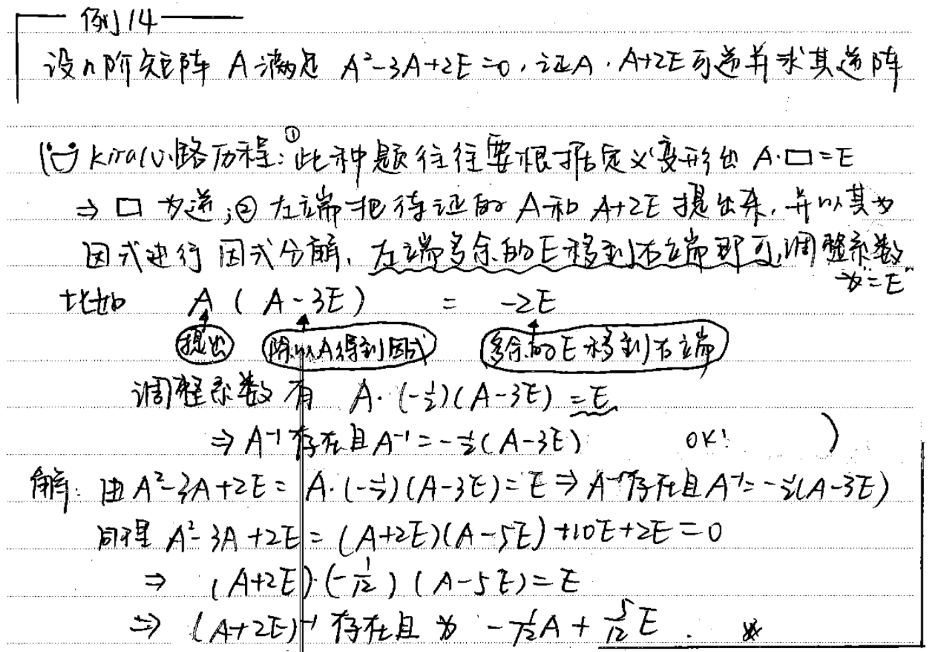 例14
设n阶矩阵 A满足 A²-3A+2E=0,证A、A+2E可逆并求其逆阵
(Kira心路历程:①此种题往往要根据定义变形出 A·□=E
⇒ □ 为逆;② 左端把待证的 A和 A+2E 提出来,并以其为
因式进行因式分解,左端多余的E移到右端即可,调整系数
为"=E"
比如 A ( A-3E) = -2E
提出 除以A得到因式 多余的E移到右端
调整系数有 A·(-½)(A-3E) = E
⇒ A⁻¹存在且A⁻¹=-½(A-3E) OK! )
解:由A²-3A+2E = A·(-½)(A-3E)=E ⇒ A⁻¹存在且A⁻¹=-½(A-3E)
同理 A²-3A+2E = (A+2E)(A-5E)+10E+2E=0
⇒ (A+2E)·(-1/12)(A-5E)=E
⇒ (A+2E)⁻¹ 存在且为 -1/12A + 5/12E .